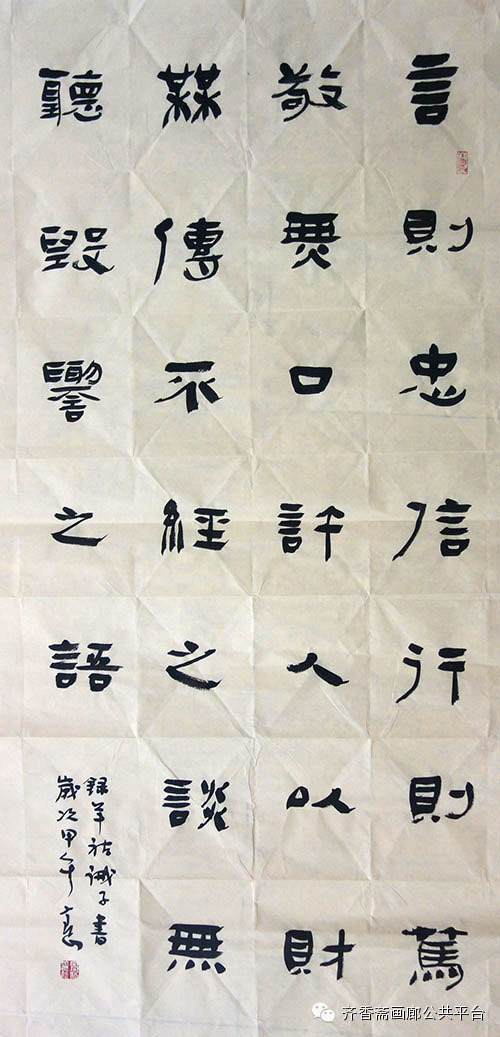 言則忠信行則篤
敬無口許人以財
無傳不經之談無
聽毀譽之語
錄羊祜誡子書
歲次甲午
齐香斋画廊公共平台